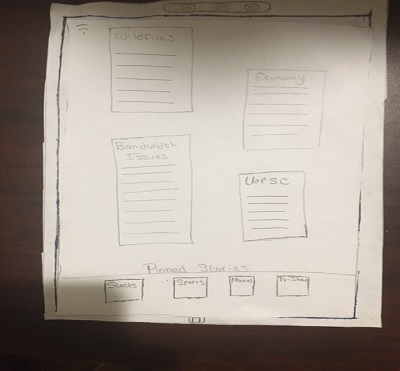 Wildfires
Economy
Bandwidth
Issues
UofSC
Pinned Stories
Stocks
Sports
Movies
Tv-Show